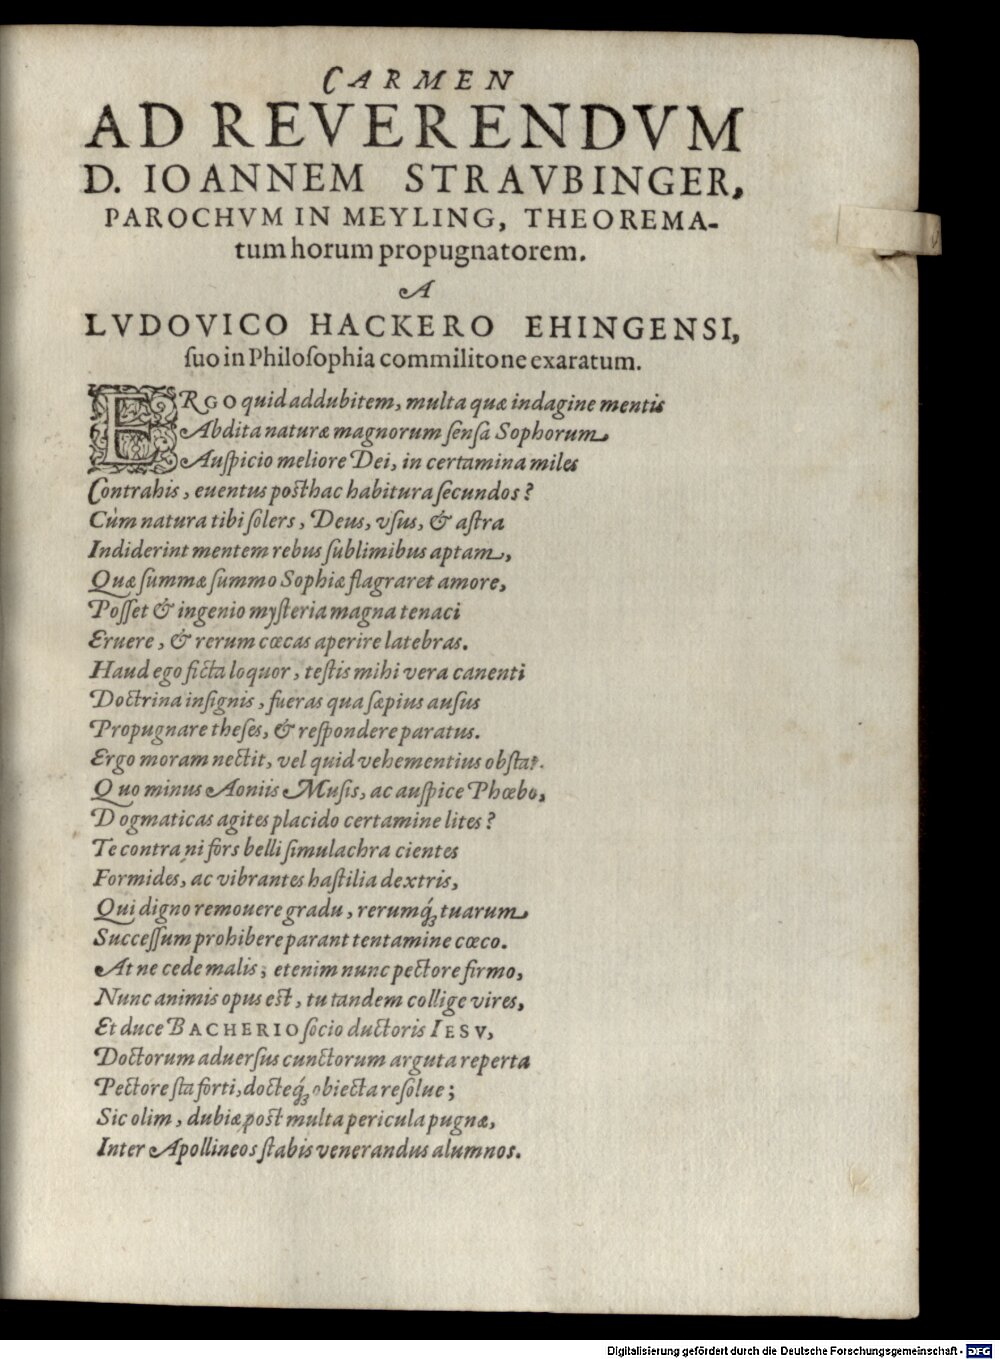 CARMEN
AD REVERENDVM
D. IOANNEM STRAVBINGER,
PAROCHVM IN MEYLING, THEOREMA-
tum horum propugnatorem.
A
LVDOVICO HACKERO EHINGENSI,
ſuo in Philoſophia commilitone exaratum.
ERGO quid addubitem, multa quæ indagine mentis
Abdita naturæ magnorum ſenſa Sophorum
Auſpicio meliore Dei, in certamina miles
Contrahis, euentus poſthac habitura ſecundos?
Cùm natura tibi ſolers, Deus, vſus, & aſtra
Indiderint mentem rebus ſublimibus aptam,
Quæ ſummæ ſummo Sophiæ flagraret amore,
Poſſet & ingenio myſteria magna tenaci
Eruere, & rerum cœcas aperire latebras.
Haud ego ficta loquor, teſtis mihi vera canenti
Doctrina inſignis, fueras qua ſæpius auſus
Propugnare theſes, & reſpondere paratus.
Ergo moram nectit, vel quid vehementius obſtat.
Quo minus Aoniis Muſis, ac auſpice Phœbo,
Dogmaticas agites placido certamine lites?
Te contra, ni fors belli ſimulachra cientes
Formides, ac vibrantes haſtilia dextris,
Qui digno remouere gradu, rerumq́; tuarum
Succeſſum prohibere parant tentamine cœco.
At ne cede malis; etenim nunc pectore firmo,
Nunc animis opus eſt, tu tandem collige vires,
Et duce BACHERIO ſocio ductoris IESV,
Doctorum aduerſus cunctorum arguta reperta
Pectore ſta forti, docteq́; obiecta reſolue;
Sic olim, dubiæ poſt multa pericula pugnæ,
Inter Apollineos ſtabis venerandus alumnos.
Digitalisierung gefördert durch die Deutsche Forschungsgemeinschaft - DFG